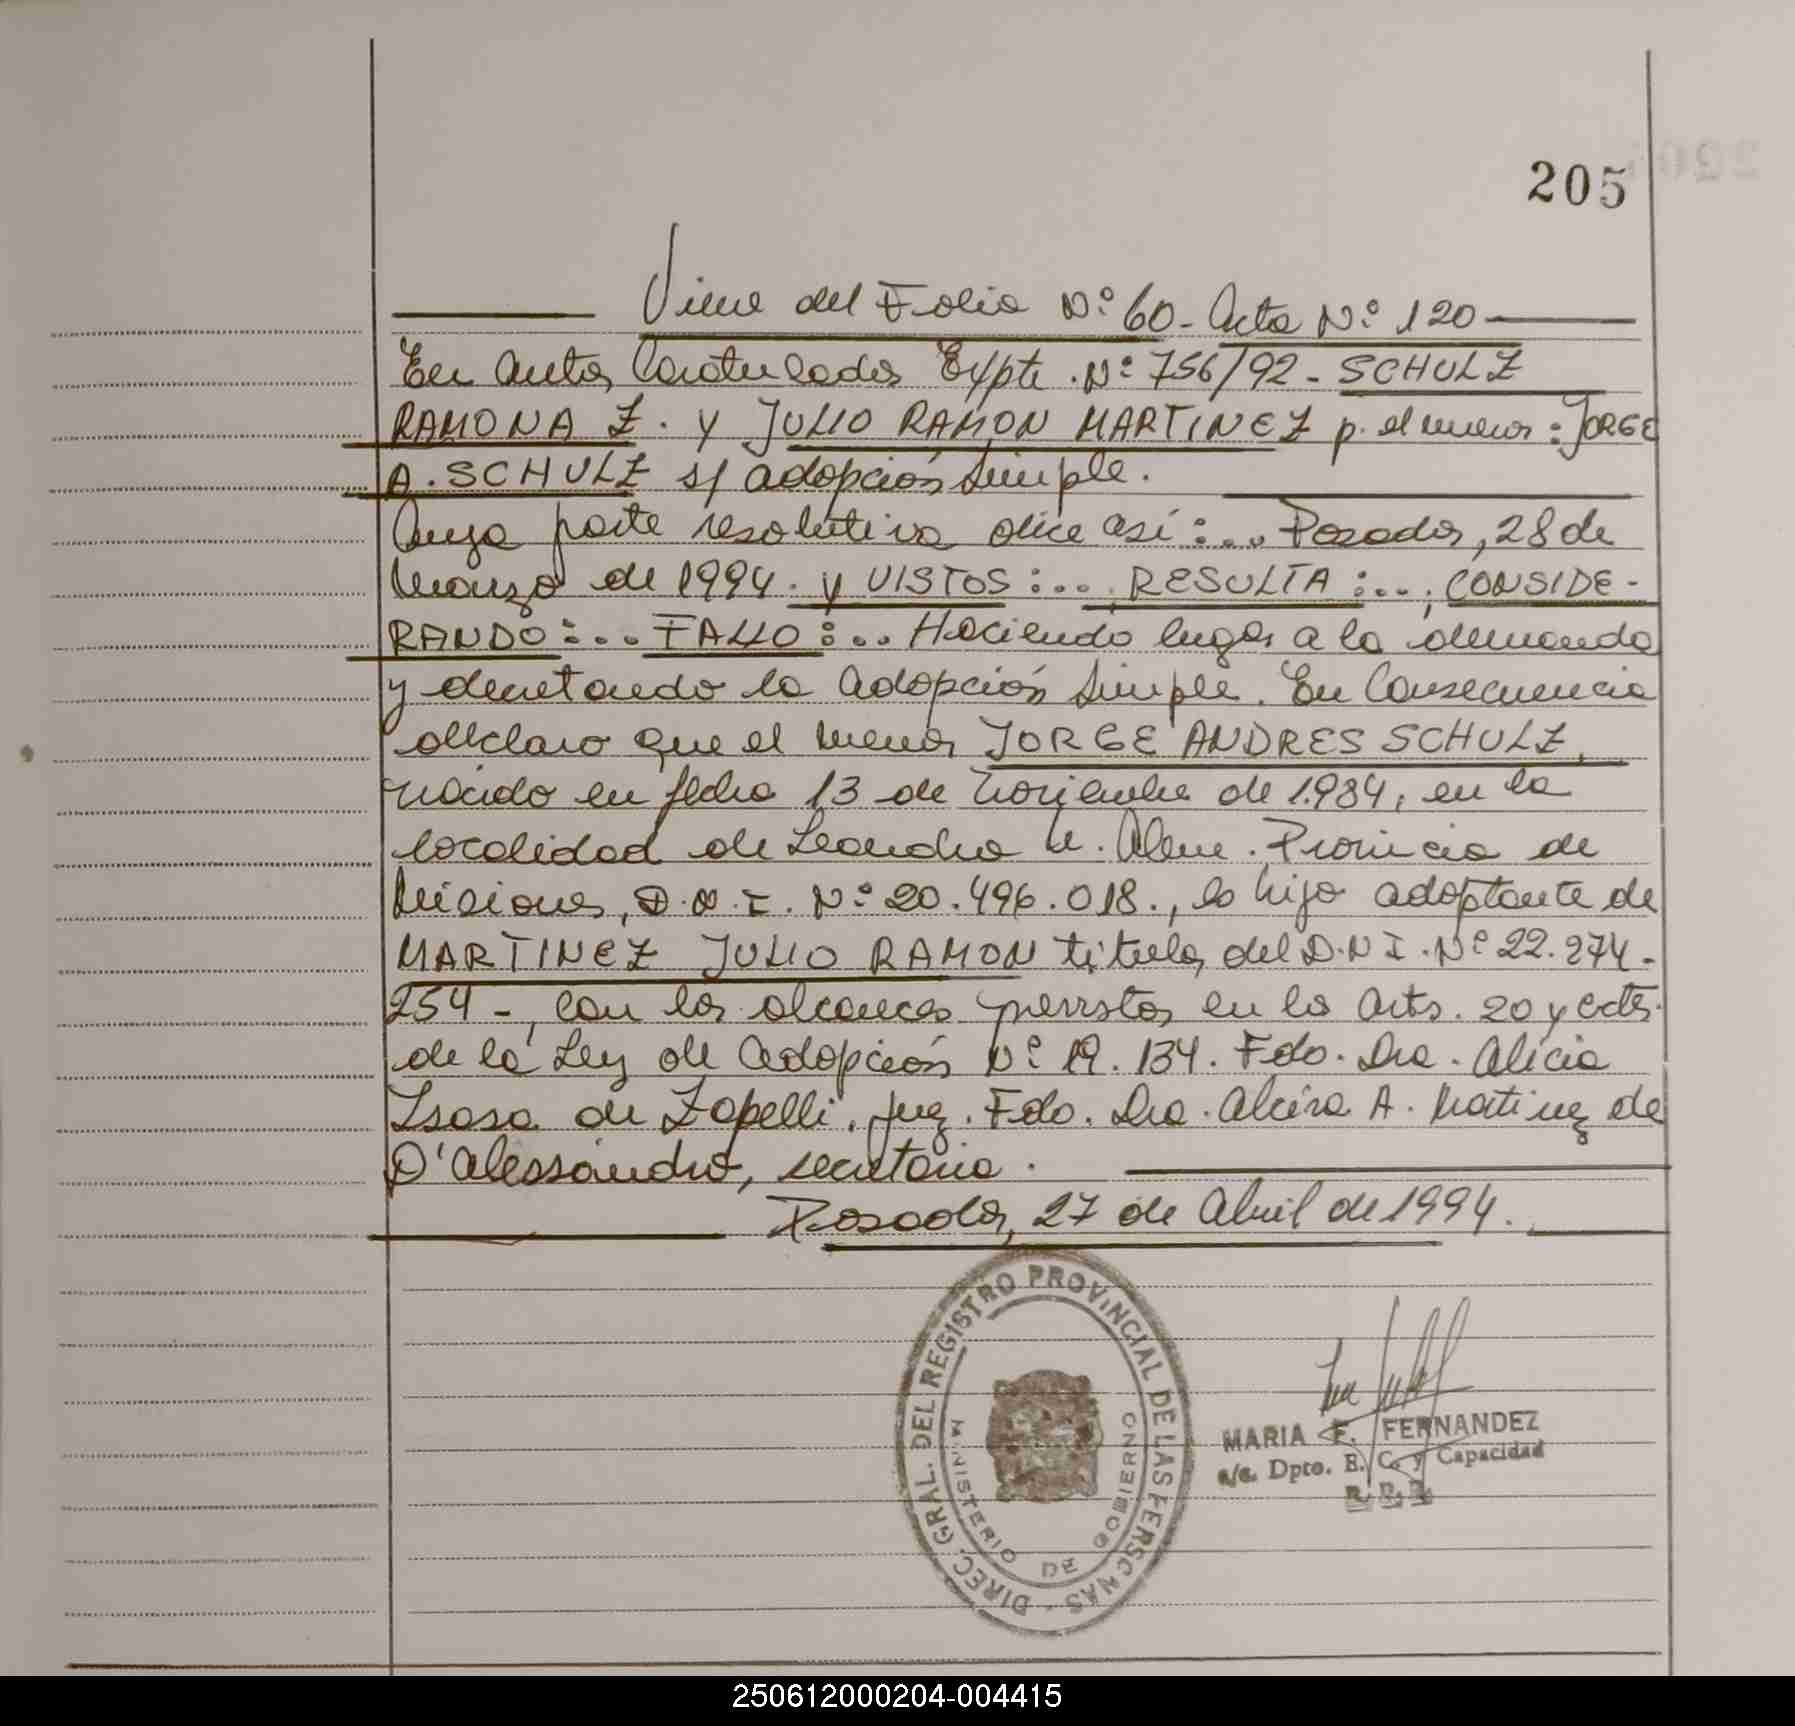 205
Viene del Folio Nº 60 - Acta Nº 120
En autos Caratulados Expte. Nº 756/92 - SCHULZ
RAMONA Z. y JULIO RAMON MARTINEZ p. el menor: JORGE
A. SCHULZ s/ adopción simple.
Cuya parte resolutiva dice así:... Posadas, 28 de
Marzo de 1994. y VISTOS:... RESULTA:..., CONSIDE-
RANDO:... FALLO:... Haciendo lugar a la demanda
y decretando la adopción simple. En Consecuencia
declaro que el menor JORGE ANDRES SCHULZ,
nacido en fecha 13 de noviembre de 1.984, en la
localidad de Leandro N. Alem. Provincia de
Misiones, D.N.I. Nº 20.496.018., es hijo adoptante de
MARTINEZ JULIO RAMON titular del D.N.I. Nº 22.274-
254 -, con los alcances previstos en los arts. 20 y cctes.
de la Ley de adopción Nº 19.134. Fdo. Dra. Alicia
Isasa de Zapelli. Juez. Fdo. Dra. Alcira A. Martinez de
D'Alessandro, secretaria.
Posadas, 27 de Abril de 1994.
DIREC. GRAL. DEL REGISTRO PROVINCIAL DE LAS PERSONAS -
MINISTERIO DE GOBIERNO
MARIA F. FERNANDEZ
a/c. Dpto. E. C. y Capacidad
250612000204-004415